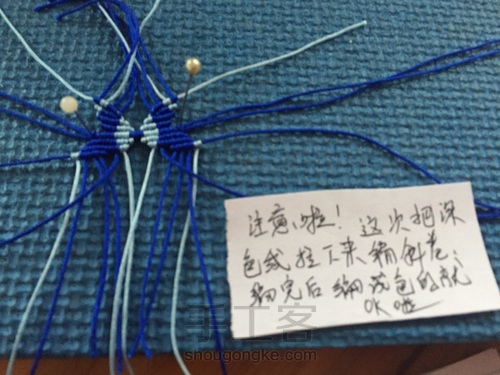 注意啦！这次把深
色线拉下来编斜卷、
编完后编浅色的就
OK啦
手工客
shougongke.com